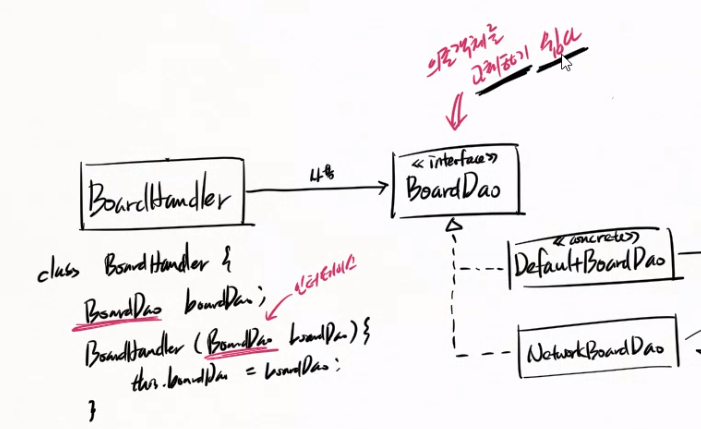 의존객체를
교체하기 쉽다
<<interface>>
BoardDao
BoardHandler
사용
<<concrete>>
DefaultBoardDao
NetworkBoardDao
class BoardHandler {
BoardDao boardDao;
인터페이스
BoardHandler (BoardDao boardDao) {
this.boardDao = boardDao;
}